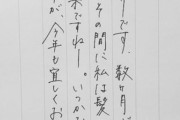 りです。数ヶ月が
その間に私は髪
来ですねー。いつか
が、今年も宜しくお